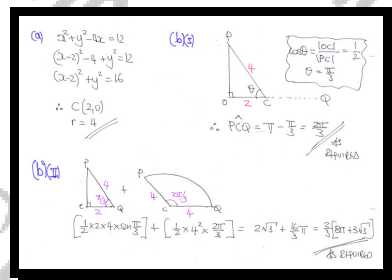 (a) x²+y²-4x=12
(x-2)²-4+y²=12
(x-2)²+y²=16
∴ C(2,0)
r=4
(b)(I)
P
4
θ
O
2
C
Q
cosθ = |OC|/|PC| = 1/2
θ = π/3
∴ PĈQ = π - π/3 = 2π/3
AS REQUIRED
(b)(II)
P
4
π/3
2
Q
+
P
4
2π/3
C
4
Q
[½×2×4×sin π/3] + [½×4²×2π/3] = 2√3 + 16/3 π = 2/3[8π+3√3]
AS REQUIRED